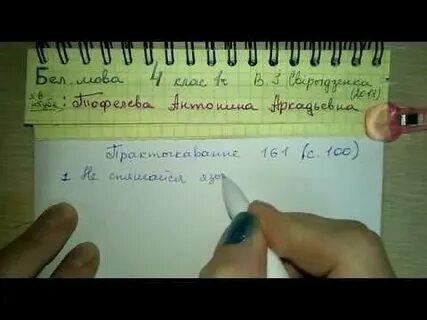 Бел. мова 4 клас 1ч В. І. Свірыдзенка
(2018)
: Тофелева Антонина Аркадьевна
Практыкаванне 161 (с. 100)
1 Не спяшайся язы